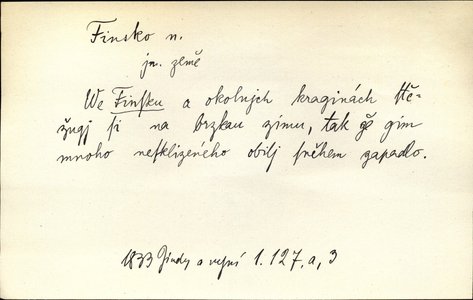 Finsko n.
jn. země
We Finſku a okolnjch kraginách ſtě-
žugj ſi na brzkau zimu, tak že gim
mnoho neſklizeného obilj ſněhem zapadlo.
1833 Jindy a nyní 1. 127, a, 3